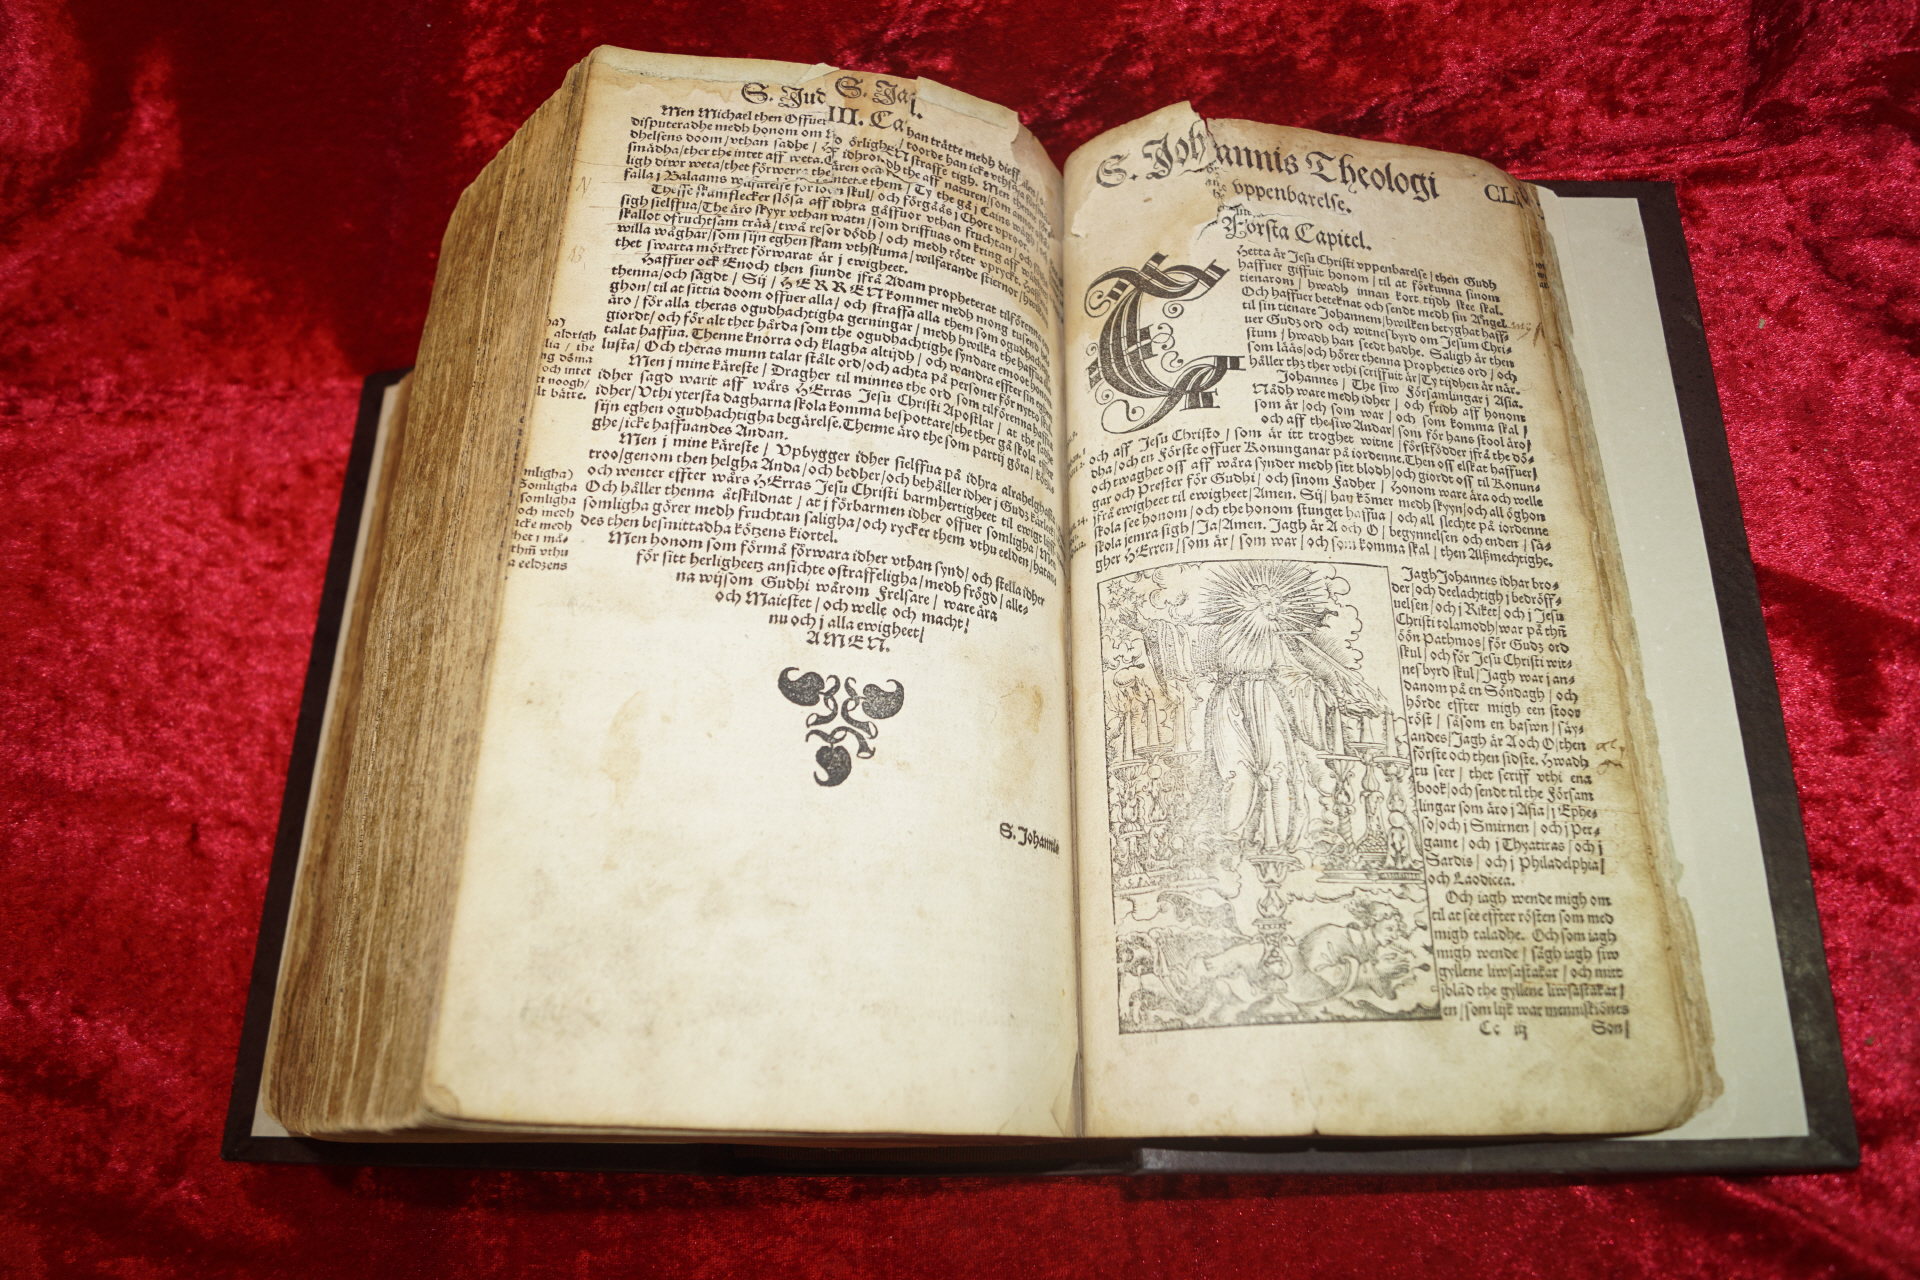 S. Jud S. Ja
III. Ca
Men Michael then Offuer han trätte medh dieff
disputeradhe medh honom om toorde han icke vthsäya
dhelsens doom/vthan sadhe / straffe tigh. Men
smädha/ther the intet aff weta. the aff naturen/som
ligh diwr weta/thet förwerr the them / Ty the gå j Cains
falla j Balaams skul/och förgåås j Chore vproor
Thesse skamflecker slösa aff idhra gåffuor vthan fruchtan/
sigh sielffua/The äro skyyr vthan watn/som driffuas om kring aff
skallot ofruchtsam trää/twå resor dödh/och medh röter vpryckt.
willa wåghar/som sijn eghen skam vthskuma/wilfarande stiernor/
thet swarta mörkret förwarat är j ewigheet.
Haffuer ock Enoch then siunde jfrå Adam propheterat tilförenna
thenna/och sagdt / Sij / HERREN kommer medh mong tusend
ghon/til at sittia doom offuer alla/och straffa alla them som ogudhachtigh
äro/för alla theras ogudhachtigha gerningar/medh hwilka the haffua
giordt/och för alt thet hårda som the ogudhachtighe syndare emoot honom
talat haffua. Thenne knorra och klagha altijdh/och wandra effter sin eghen
lusta/Och theras munn talar stålt ord/och achta på personer för nytto skul.
Men j mine käreste / Dragher til minnes the ord som tilförenna
idher sagd warit aff wårs HErras Jesu Christi Apostlar/at the sadhe
idher/Vthi ytersta dagharna skola komma bespottare/the ther gå skola effter
sijn eghen ogudhachtigha begärelse. Thenne äro the som partij göra/
ghe/icke haffuandes Andan.
Men j mine käreste / Vpbygger idher sielffua på idhra alrahelghasta
troo/genom then helgha Anda/och bedher/och behåller idher j Gudz kärleek
och wenter effter wårs HErras Jesu Christi barmhertigheet til ewigt
Och håller thenna åtskildnat/at j förbarmen idher offuer somligha/Men
somligha görer medh fruchtan saligha/och rycker them vthu eelden/
des then besmittadha kötzens kiortel.
Men honom som förmå förwara idher vthan synd/och stella idher
för sitt herligheetz ansichte ostraffeligha/medh frögd/alle-
na wijsom Gudhi wårom Frelsare/ware ära
och Maiestet/och welle och macht/
nu och j alla ewigheet/
AMEN.
aldrigh
the
döma
och intet
noogh/
bätre.
Somligha
somligha
och medh
medh
vthu
eeldzens
S. Johannis
S. Johannis Theologi
vppenbarelse.
Första Capitel.
Thetta är Jesu Christi vppenbarelse/then Gudh
haffuer giffuit honom/til at förkunna sinom
tienarom/hwadh innan kort tijdh skee skal.
Och haffuer beteknat och sendt medh sin Ängel
til sin tienare Johannem/hwilken betyghat haff-
uer Gudz ord och witnesbyrd om Jesum Chri-
stum/hwadh han seedt hadhe. Saligh är then
som lääs/och hörer thenna Propheties ord/och
håller thz ther vthi scriffuit är/Ty tijdhen är när.
Johannes / The siw Församlingar j Asia.
Nådh ware medh idher / och fridh aff honom
som är/och som war / och som komma skal/
och aff the siw Andar/som för hans stool äro/
och aff Jesu Christo/som är itt troghet witne/förstfödder jfrå the dö-
dha/och en Förste offuer Konunganar på iordenne. Then oss elskat haffuer/
och twaghet oss aff wåra synder medh sitt blodh/och giordt oss til Konun-
gar och Prester för Gudhi/och sinom Fadher/Honom ware ära och welle
jfrå ewigheet til ewigheet/Amen. Sij/han kömer medh skyyn/och all öghon
skola see honom/och the honom stunget haffua/och all slechte på iordenne
skola jemra sigh/Ja/Amen. Jagh är A och O/begynnelsen och enden/sä-
gher HErren/som är/som war/och som komma skal/then Alßmechtighe.
Jagh Johannes idhar bro-
der/och deelachtigh j bedröff-
uelsen/och j Riket/och j Jesu
Christi tolamodh/war på thn
öön Pathmos/för Gudz ord
skul/och för Jesu Christi wit-
nesbyrd skul/Jagh war j an-
danom på en Söndagh/och
hörde effter migh een stoor
röst/såsom en baswn/säy-
andes/Jagh är A och O/then
förste och then sidste. Hwadh
tu seer/thet scriff vthi ena
book/och sendt til the Försam
lingar som äro j Asia/j Ephe-
so/och j Smirnen/och j Per-
game/och j Thyatiras/och j
Sardis/och j Philadelphia/
och Laodicea.
Och iagh wende migh om
til at see effter rösten som med
migh taladhe. Och som iagh
migh wende/sågh iagh siw
gyllene liwsastakar/och mitt
jbland the gyllene liwsastakar/
en/som lijk war menniskiones
Cc iij Son/